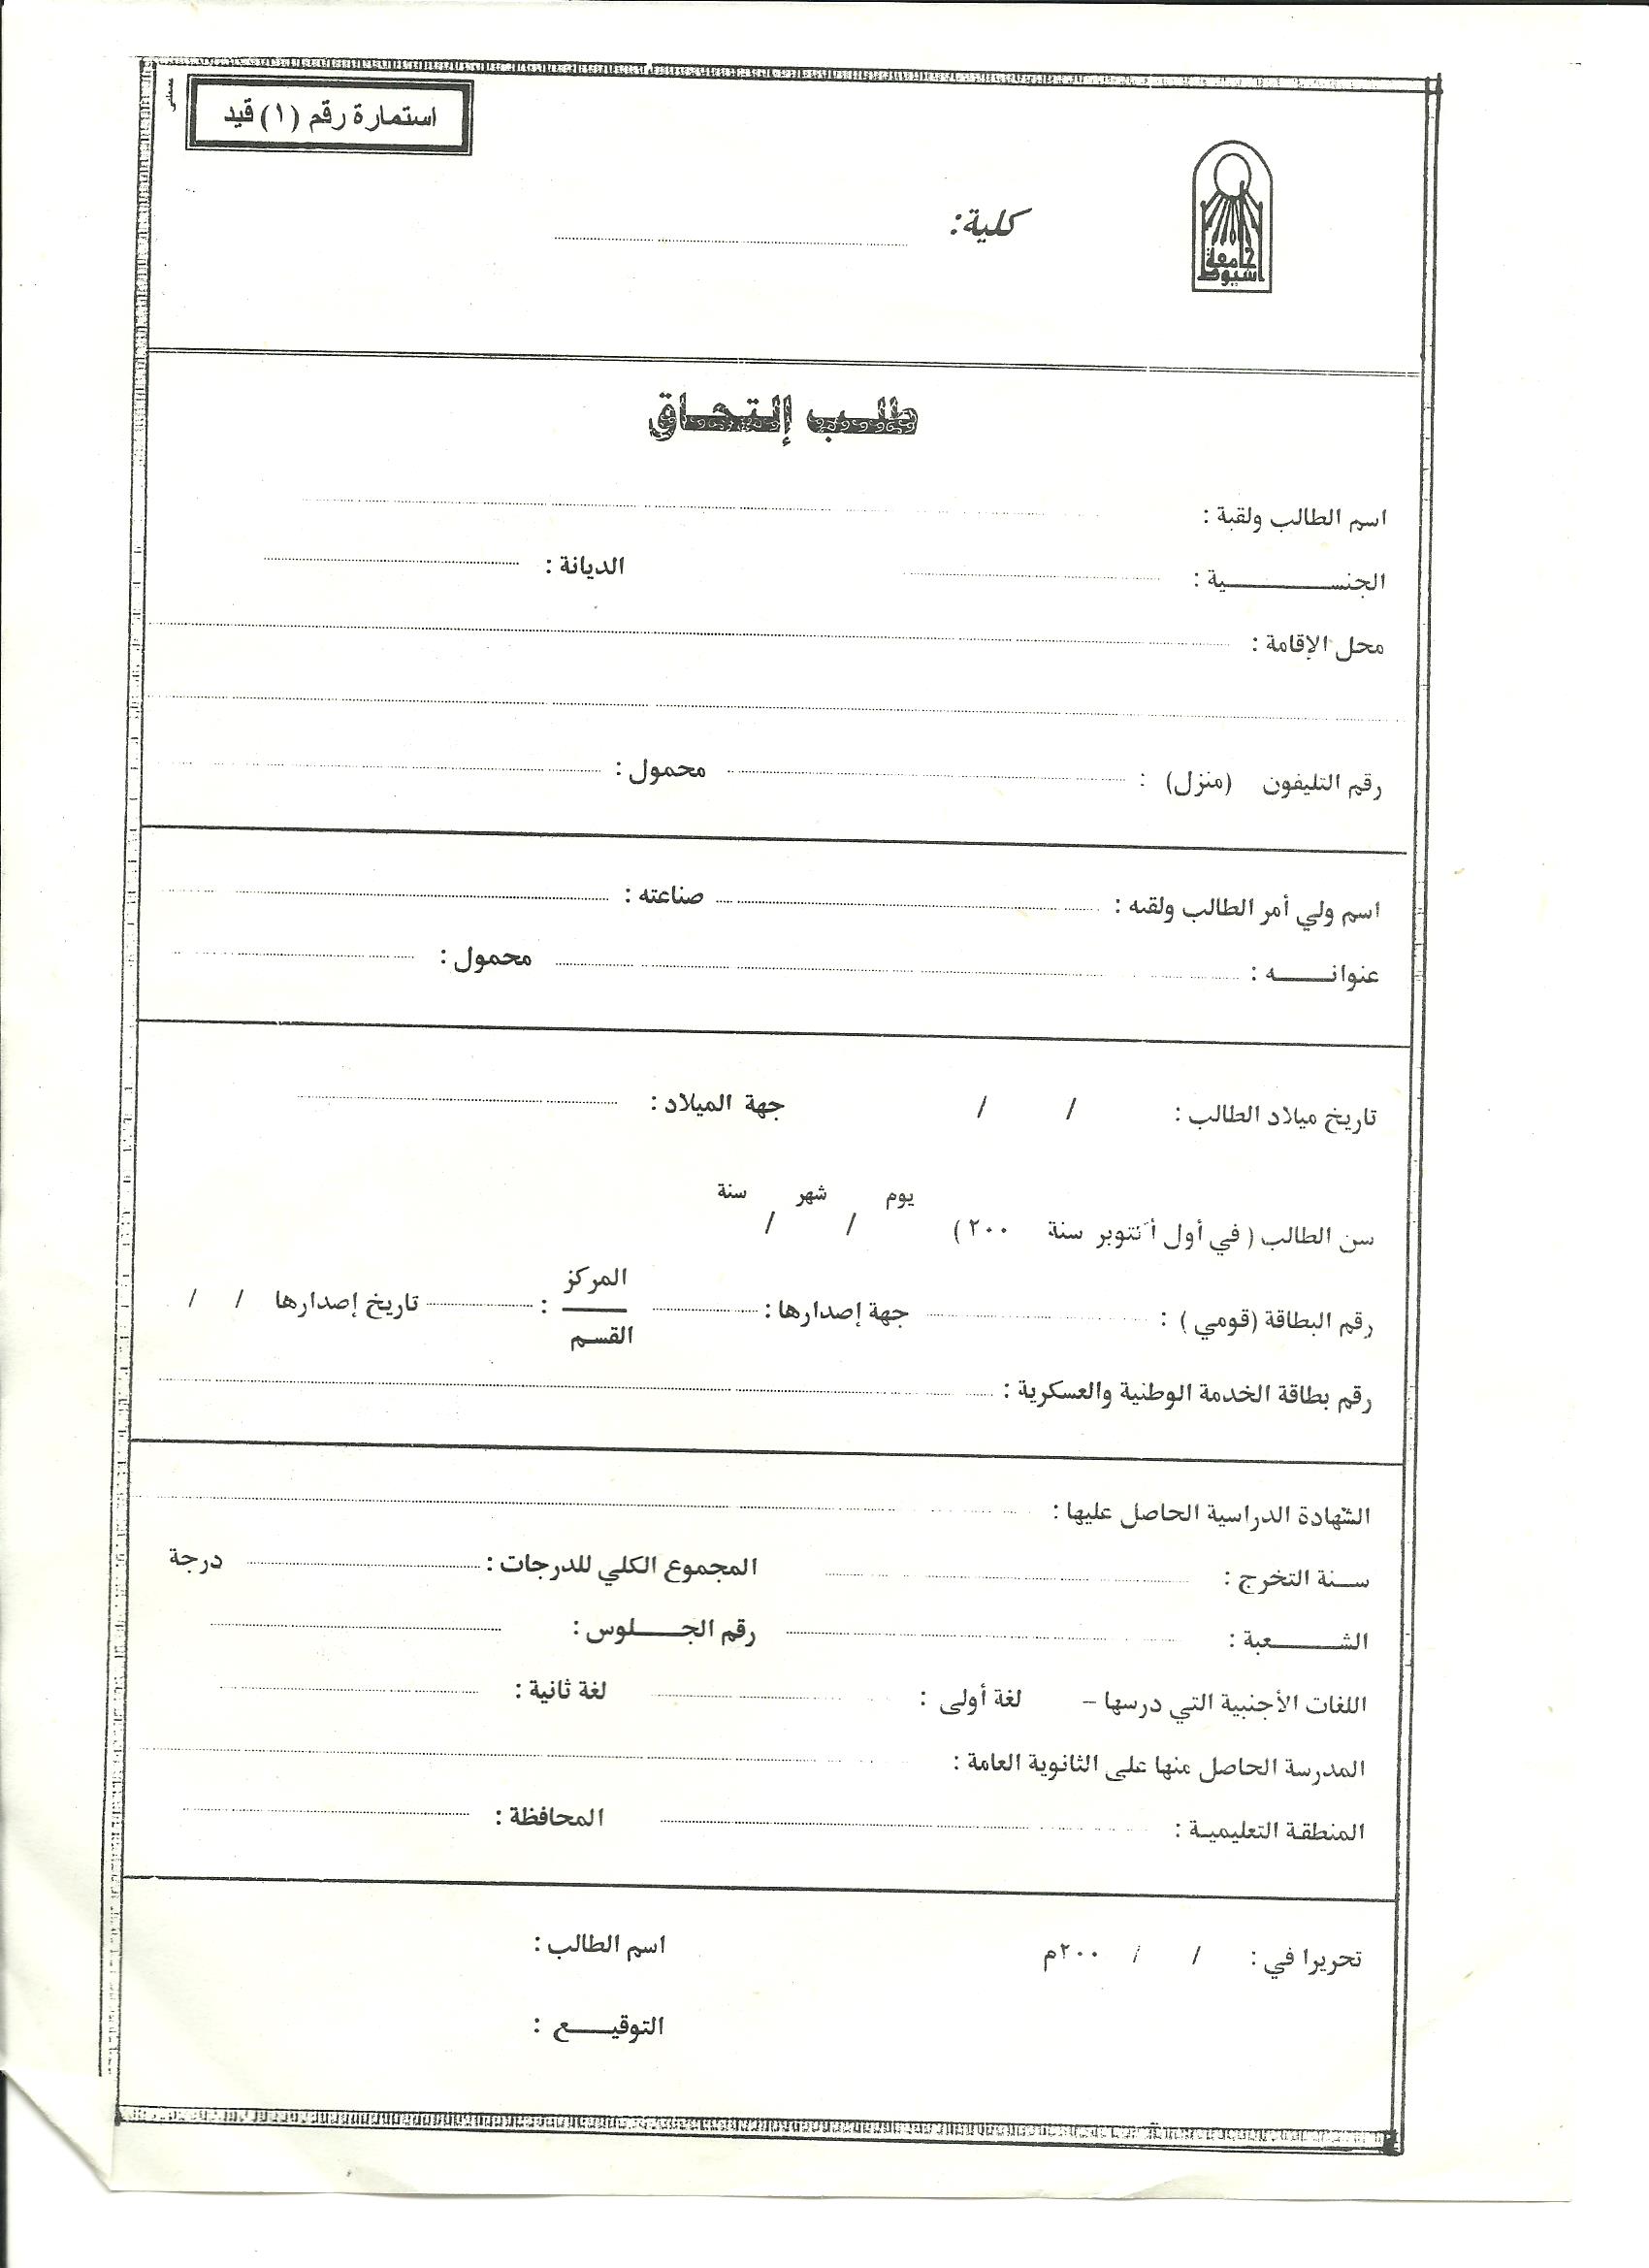 استمارة رقم (١) قيد
جامعة
أسيوط
كلية:
طلب إلتحاق
اسم الطالب ولقبة :
الجنسية : الديانة :
محل الإقامة :
رقم التليفون (منزل) : محمول :
اسم ولي أمر الطالب ولقبه : صناعته :
عنوانه : محمول :
تاريخ ميلاد الطالب : / / جهة الميلاد :
يوم شهر سنة
سن الطالب ( في أول أكتوبر سنة ٢٠٠ ) / /
رقم البطاقة (قومي ) : جهة إصدارها : المركز / القسم : تاريخ إصدارها / /
رقم بطاقة الخدمة الوطنية والعسكرية :
الشهادة الدراسية الحاصل عليها :
سنة التخرج : المجموع الكلي للدرجات : درجة
الشعبة : رقم الجلوس :
اللغات الأجنبية التي درسها – لغة أولى : لغة ثانية :
المدرسة الحاصل منها على الثانوية العامة :
المنطقة التعليمية : المحافظة :
تحريرا في : / / ٢٠٠م اسم الطالب :
التوقيع :